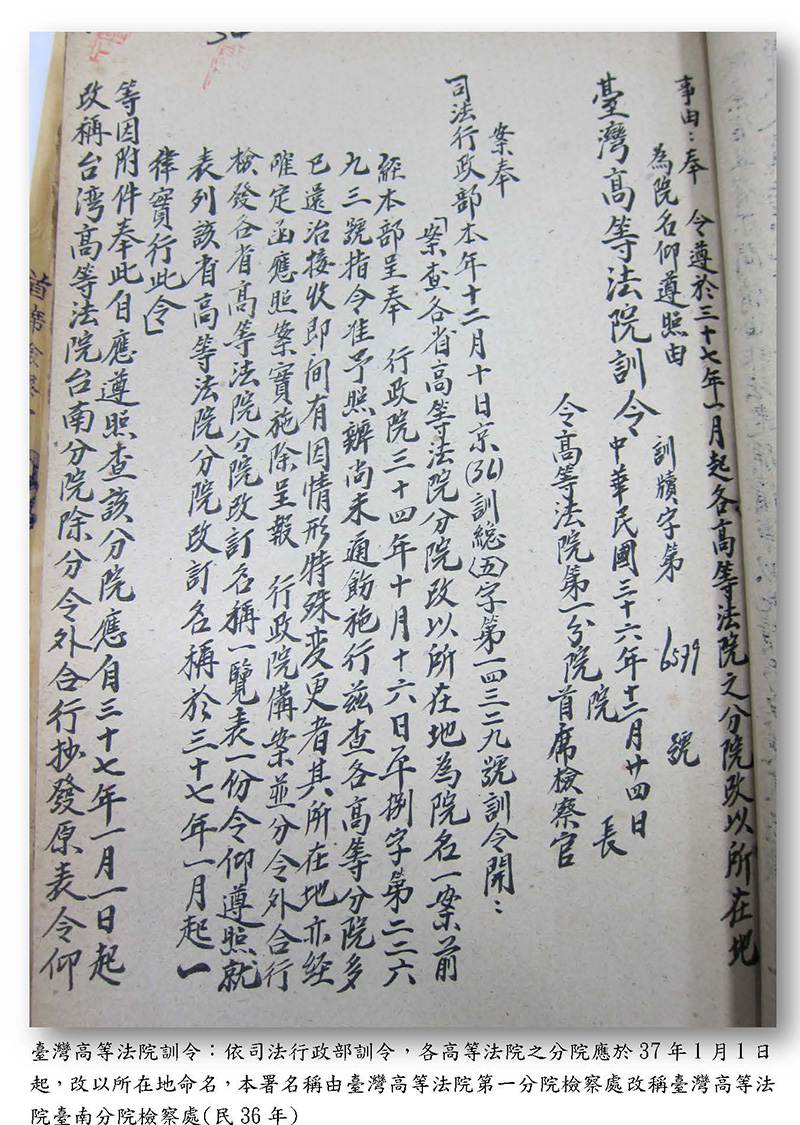 事由：奉　令遵於三十七年一月起各高等法院之分院改以所在地
為院名仰遵照由
訓牘字第　6579　號
臺灣高等法院訓令　中華民國三十六年十二月廿四日
令高等法院第一分院院長
首席檢察官
案奉
司法行政部本年十二月十日京(36)訓總(五)字第一四三二九號訓令開：
「案查各省高等法院分院改以所在地為院名一案前
經本部呈奉　行政院三十四年十月十六日平捌字第二二六
九三號指令准予照辦尚未通飭施行茲查各高等分院多
已還治接收即间有因情形特殊变更者其所在地亦经
確定函應照案實施除呈報　行政院備案並分令外合行
檢發各省高等法院分院改訂名稱一覽表一份令仰遵照就
表列該省高等法院分院改訂名稱於三十七年一月起一
律實行此令」
等因附件奉此自應遵照查該分院應自三十七年一月一日起
改稱台湾高等法院台南分院除分令外合行抄發原表令仰
首席檢察
臺灣高等法院訓令：依司法行政部訓令，各高等法院之分院應於 37 年 1 月 1 日
起，改以所在地命名，本署名稱由臺灣高等法院第一分院檢察處改稱臺灣高等法
院臺南分院檢察處(民 36 年)